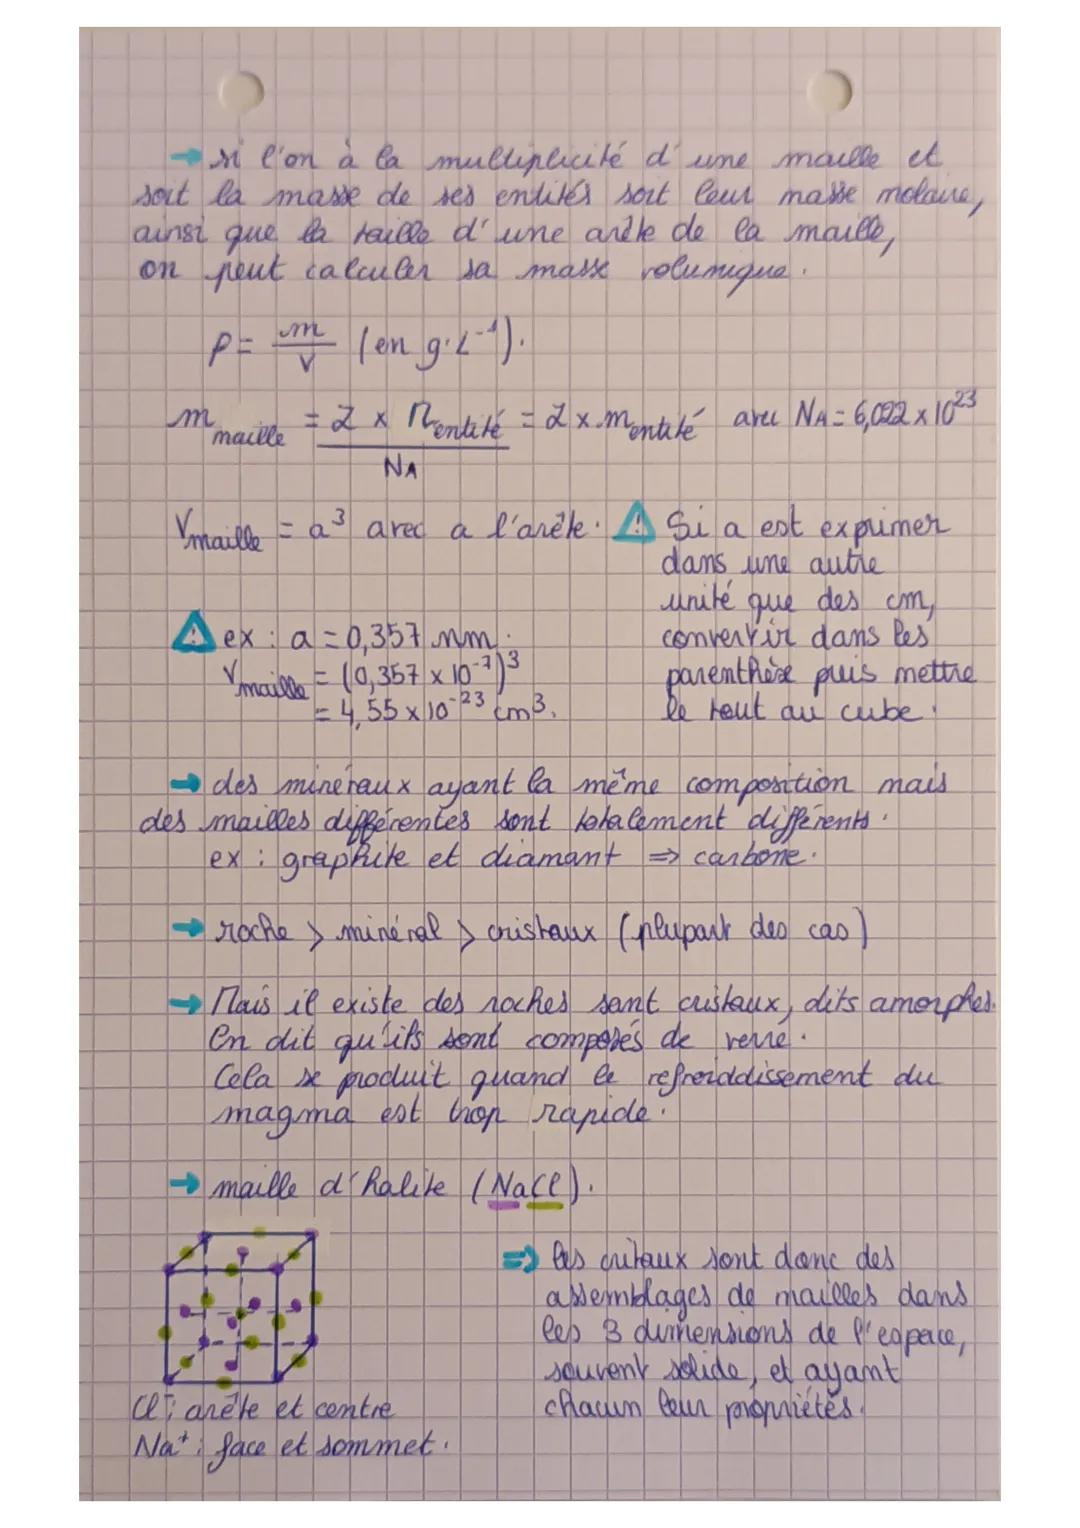 → si l'on à la multiplicité d'une maille et
soit la masse de ses entités soit leur masse molaire,
ainsi que la taille d'une arête de la maille,
on peut calculer sa masse volumique.
ρ = m/V (en g·L⁻¹).
m maille = Z × M entité / NA = Z × m entité avec NA = 6,022 × 10²³
V maille = a³ avec a l'arête. ⚠ Si a est exprimer
dans une autre
unité que des cm,
convertir dans les
parenthèse puis mettre
le tout au cube.
⚠ ex : a = 0,357 nm.
V maille = (0,357 × 10⁻⁷)³
= 4,55 × 10⁻²³ cm³.
→ des minéraux ayant la même composition mais
des mailles différentes sont totalement différents.
ex : graphite et diamant ⇒ carbone.
→ roche > minéral > cristaux (plupart des cas)
→ Mais il existe des roches sant cristaux, dits amorphes.
On dit qu'ils sont composés de verre.
Cela se produit quand le refroiddissement du
magma est trop rapide.
→ maille d'halite (NaCl).
⇒ les critaux sont donc des
assemblages de mailles dans
les 3 dimensions de l'espace,
souvent solide, et ayant
chacun leur propriétés.
Cl⁻ : arête et centre
Na⁺ : face et sommet.